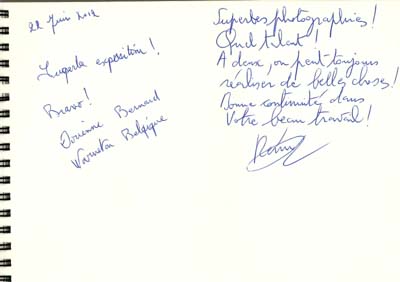 22 Juin 2012
Superbe exposition !
Bravo !
Bernard
Warneton Belgique
Superbes photographies !
Quel talent !
A deux, on peut toujours
réaliser de belles choses !
Bonne continuité dans
Votre beau travail !